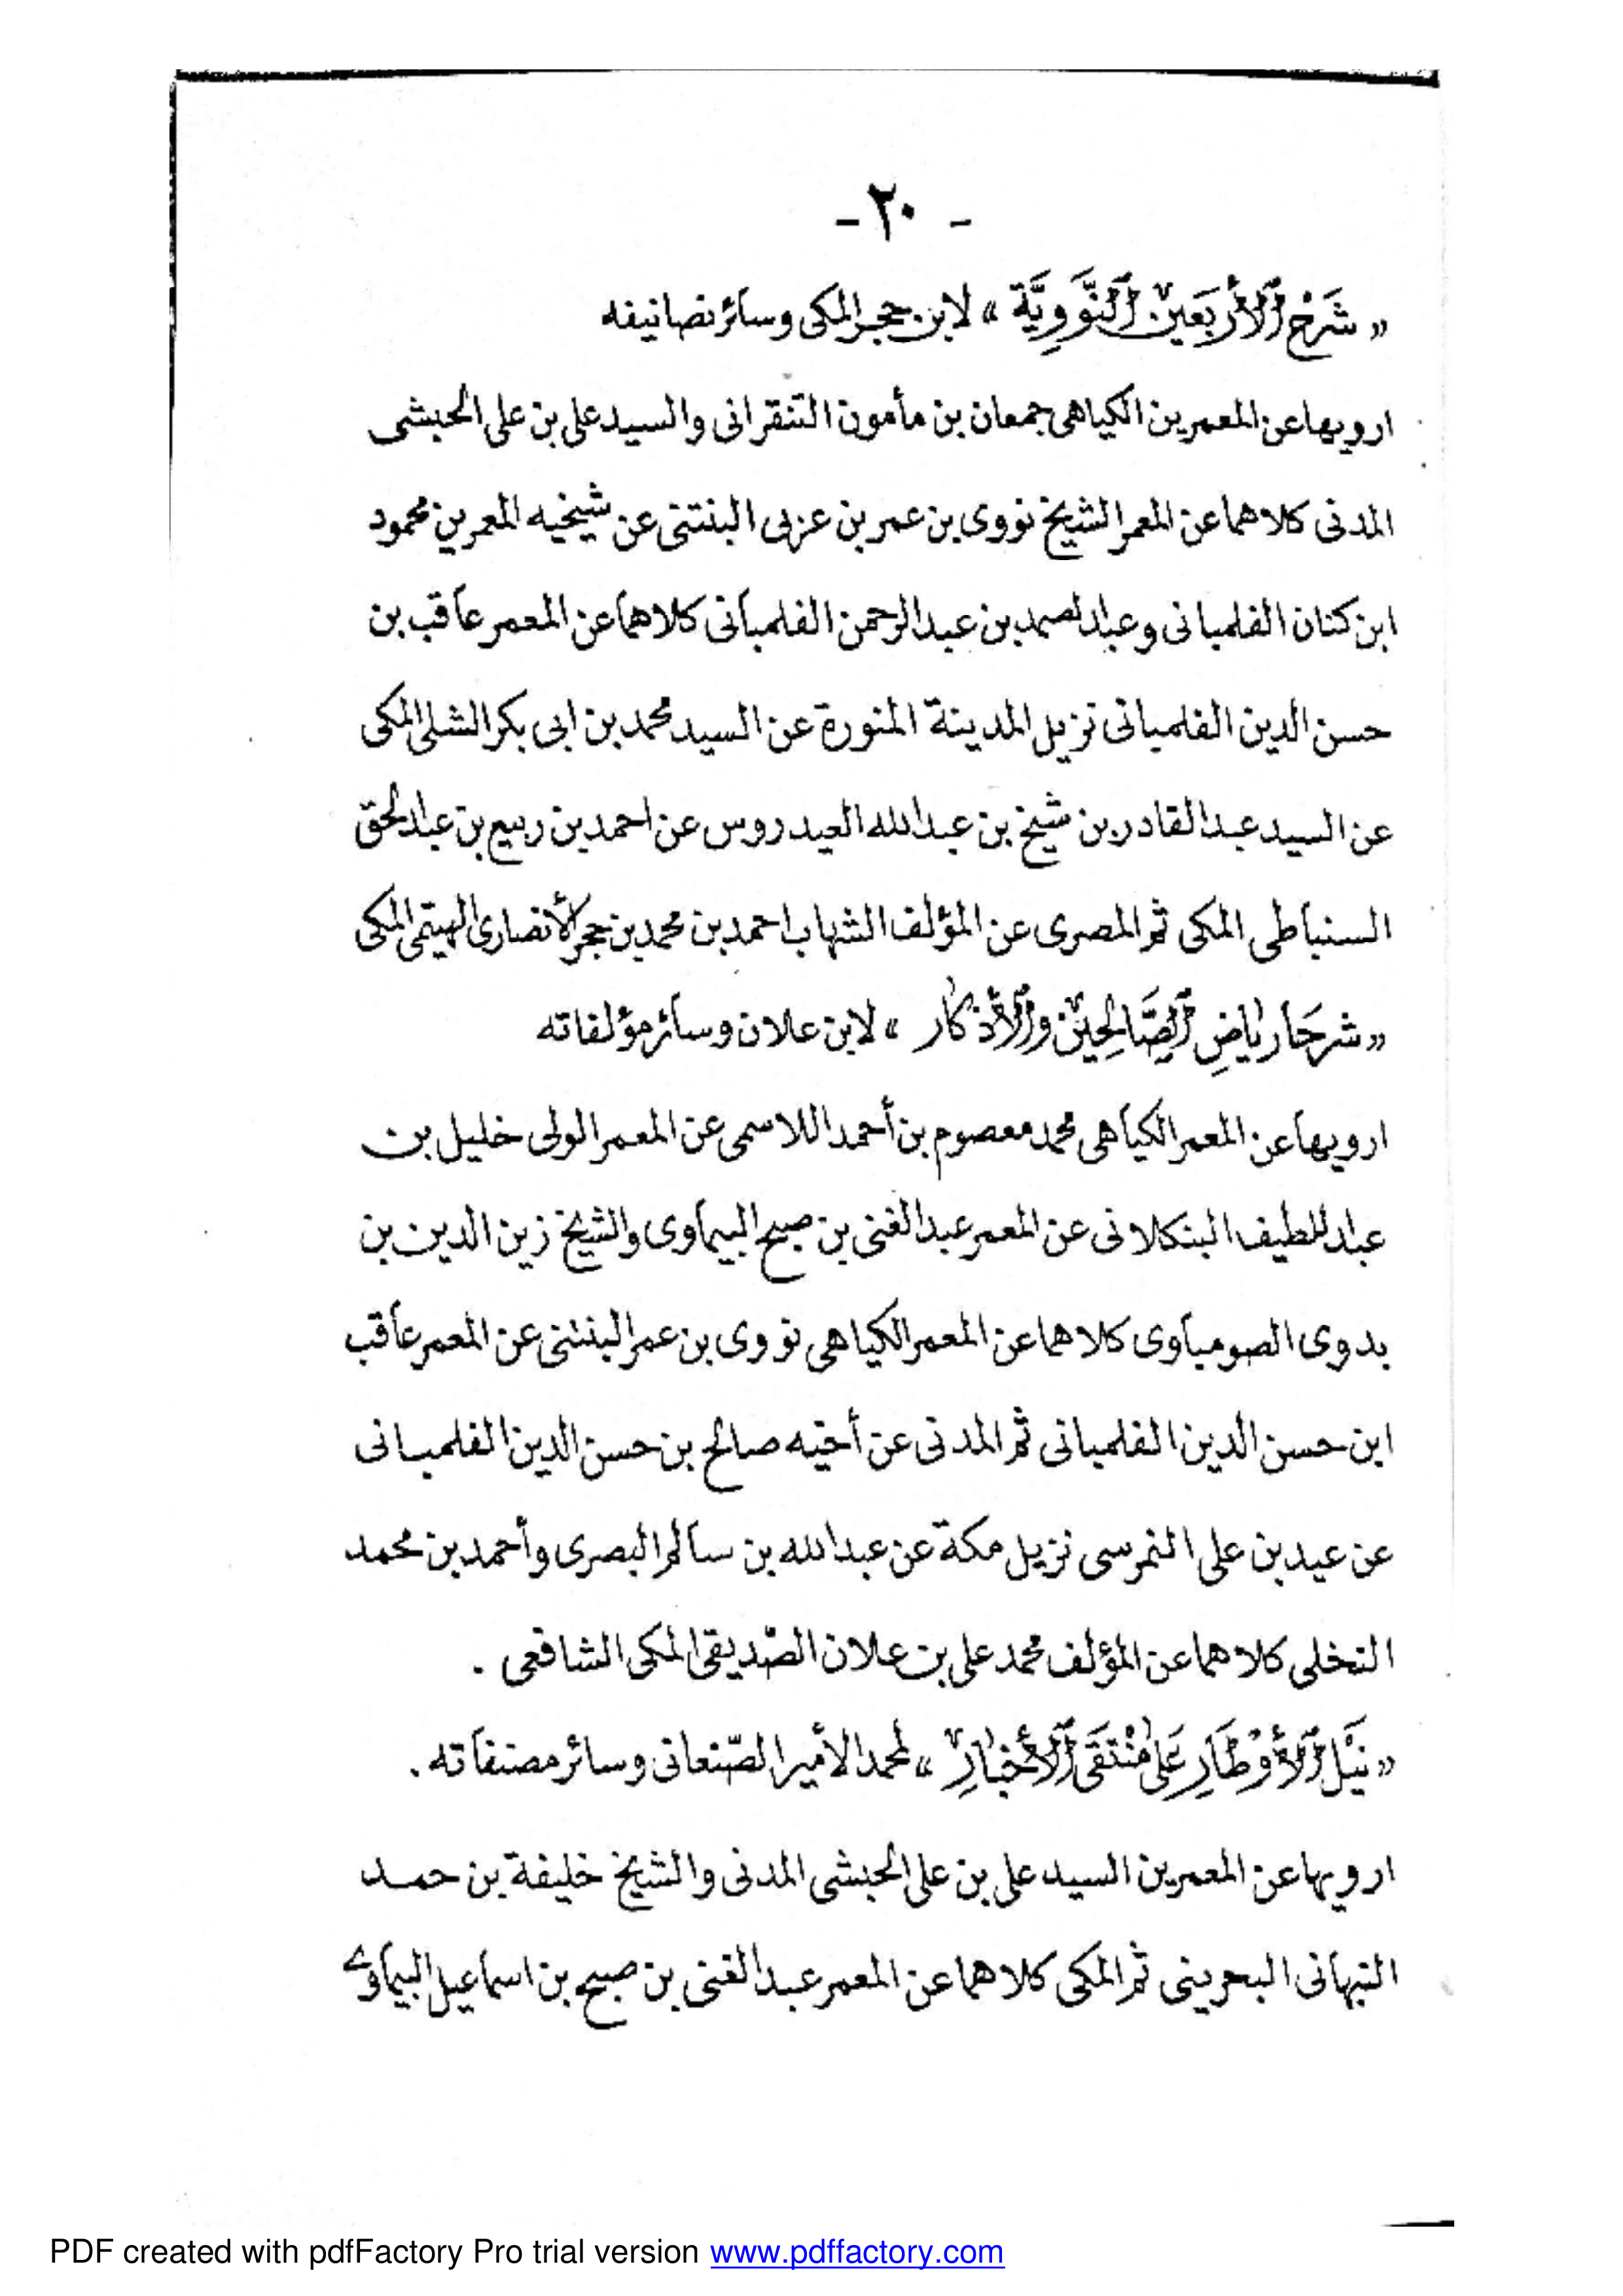 - ٢٠ -
« شَرْحُ الْأَرْبَعِيْنَ النَّوَوِيَّة » لابن حجر المكى وسائر تصانيفه
ارويها عن المعمرين الكياهى جمعان بن مأمون التنقرانى والسيد على بن على الحبشى
المدنى كلاهما عن المعمر الشيخ نووى بن عمر بن عربى البنتنى عن شيخيه المعمرين محمود
ابن كنان الفلمبانى وعبد الصمد بن عبد الرحمن الفلمبانى كلاهما عن المعمر عاقب بن
حسن الدين الفلمبانى نزيل المدينة المنورة عن السيد محمد بن ابى بكر الشلى المكى
عن السيد عبد القادر بن شيخ بن عبد الله العيدروس عن احمد بن ربيع بن عبد الحق
السنباطى المكى ثم المصرى عن المؤلف الشهاب احمد بن محمد بن حجر الأنصارى الهيتمى المكى
« شرحَا رِيَاضِ الصَّالِحِيْنَ وَالْأَذْكَار » لابن علان وسائر مؤلفاته
ارويها عن المعمر الكياهى محمد معصوم بن أحمد اللاسمى عن المعمر الولى خليل بن
عبد اللطيف البنكلانى عن المعمر عبد الغنى بن صبح البيماوى والشيخ زين الدين بن
بدوى الصومباوى كلاهما عن المعمر الكياهى نووى بن عمر البنتنى عن المعمر عاقب
ابن حسن الدين الفلمبانى ثم المدنى عن أخيه صالح بن حسن الدين الفلمبانى
عن عيد بن على النمرسى نزيل مكة عن عبد الله بن سالم البصرى وأحمد بن محمد
النخلى كلاهما عن المؤلف محمد على بن علان الصّديقى المكى الشافعى .
« نَيْلُ الْأَوْطَارِ عَلَى مُنْتَقَى الْأَخْبَارِ » لمحمد الأمير الصّنعانى وسائر مصنفاته .
ارويها عن المعمرين السيد على بن على الحبشى المدنى والشيخ خليفة بن حمد
النبهانى البحرينى ثم المكى كلاهما عن المعمر عبد الغنى بن صبح بن اسماعيل البيماوى
PDF created with pdfFactory Pro trial version www.pdffactory.com